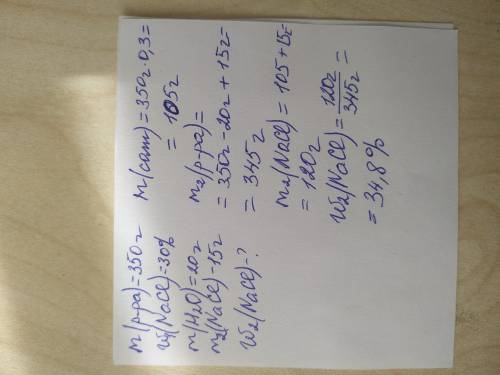 m(р-ра)=350г
w₁(NaCl)=30%
m(H₂O)=20г
m₂(NaCl)-15г
w₂(NaCl)-?
m(соли)=350г·0,3=
= 105г
m₂(р-ра)=
=350г-20г+15г
= 345г
m₂(NaCl)=105+15=
=120г
w₂(NaCl)=120г/345г=
=34,8%